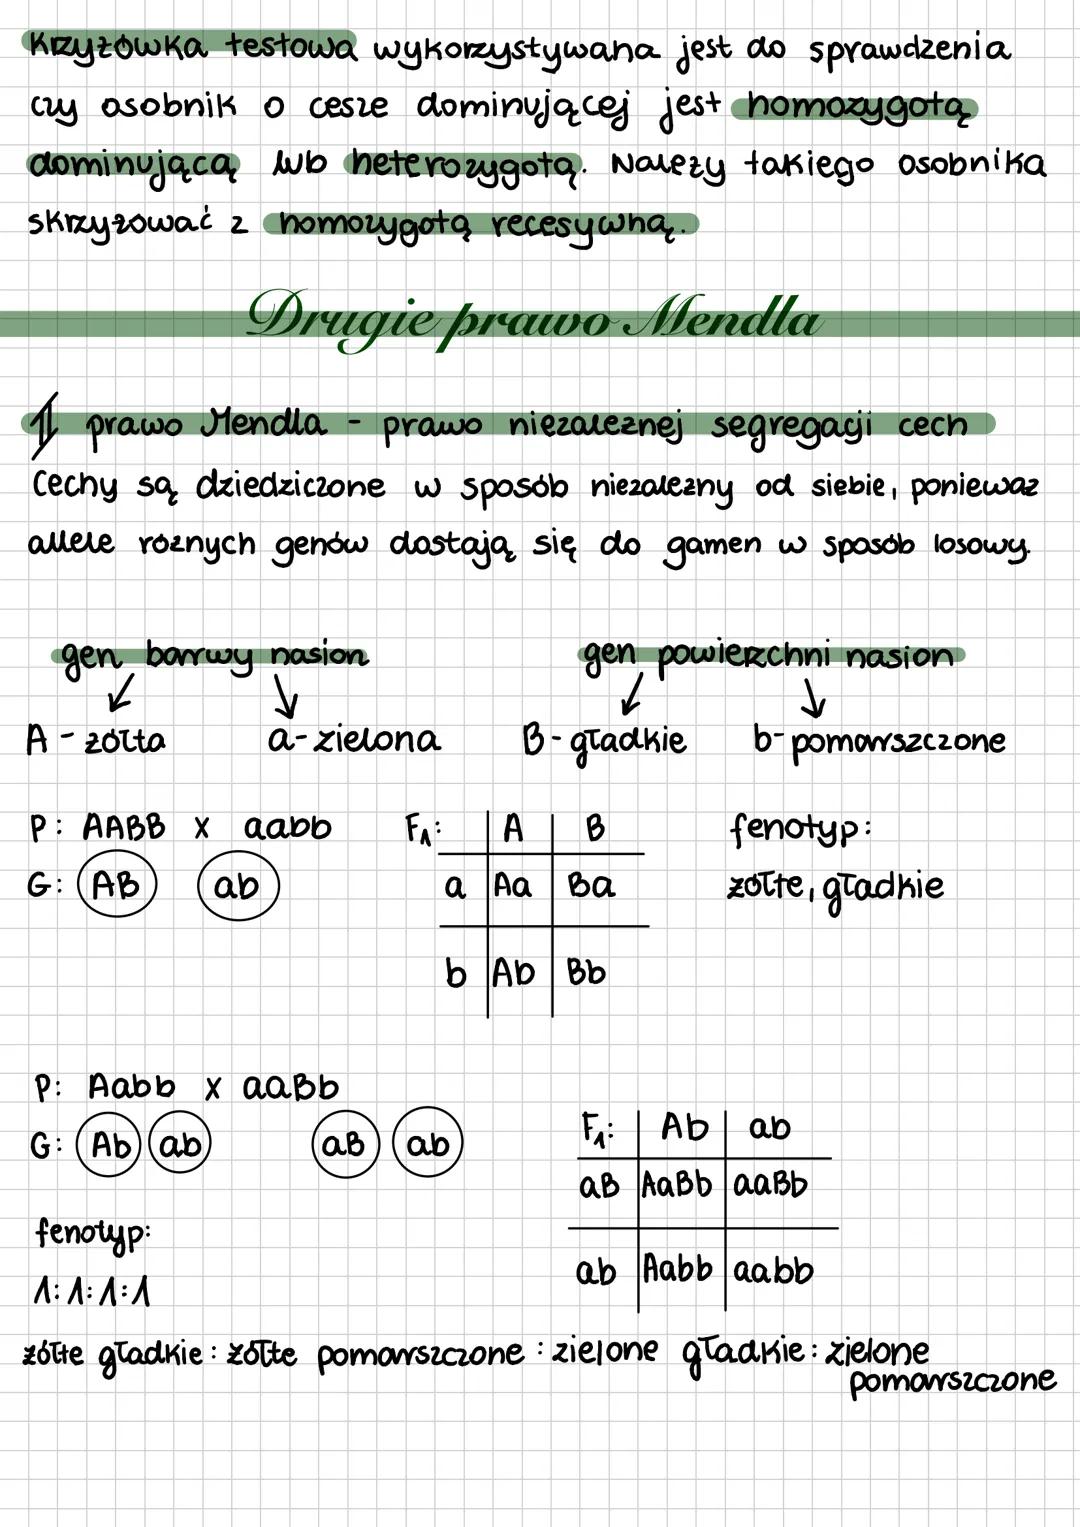 Krzyżówka testowa wykorzystywana jest do sprawdzenia
czy osobnik o cesze dominującej jest homozygotą
dominującą lub heterozygotą. Należy takiego osobnika
skrzyżować z homozygotą recesywną.
Drugie prawo Mendla
II prawo Mendla - prawo niezależnej segregacji cech
Cechy są dziedziczone w sposób niezależny od siebie, ponieważ
allele różnych genów dostają się do gamen w sposób losowy.
gen barwy nasion
gen powierzchni nasion
A - żółta a - zielona B - gładkie b - pomarszczone
P: AABB x aabb
G: AB ab
F1: A B
a Aa Ba
b Ab Bb
fenotyp:
żółte, gładkie
P: Aabb x aaBb
G: Ab ab aB ab
F1: Ab ab
aB AaBb aaBb
ab Aabb aabb
fenotyp:
1:1:1:1
żółte gładkie : żółte pomarszczone : zielone gładkie : zielone
pomarszczone